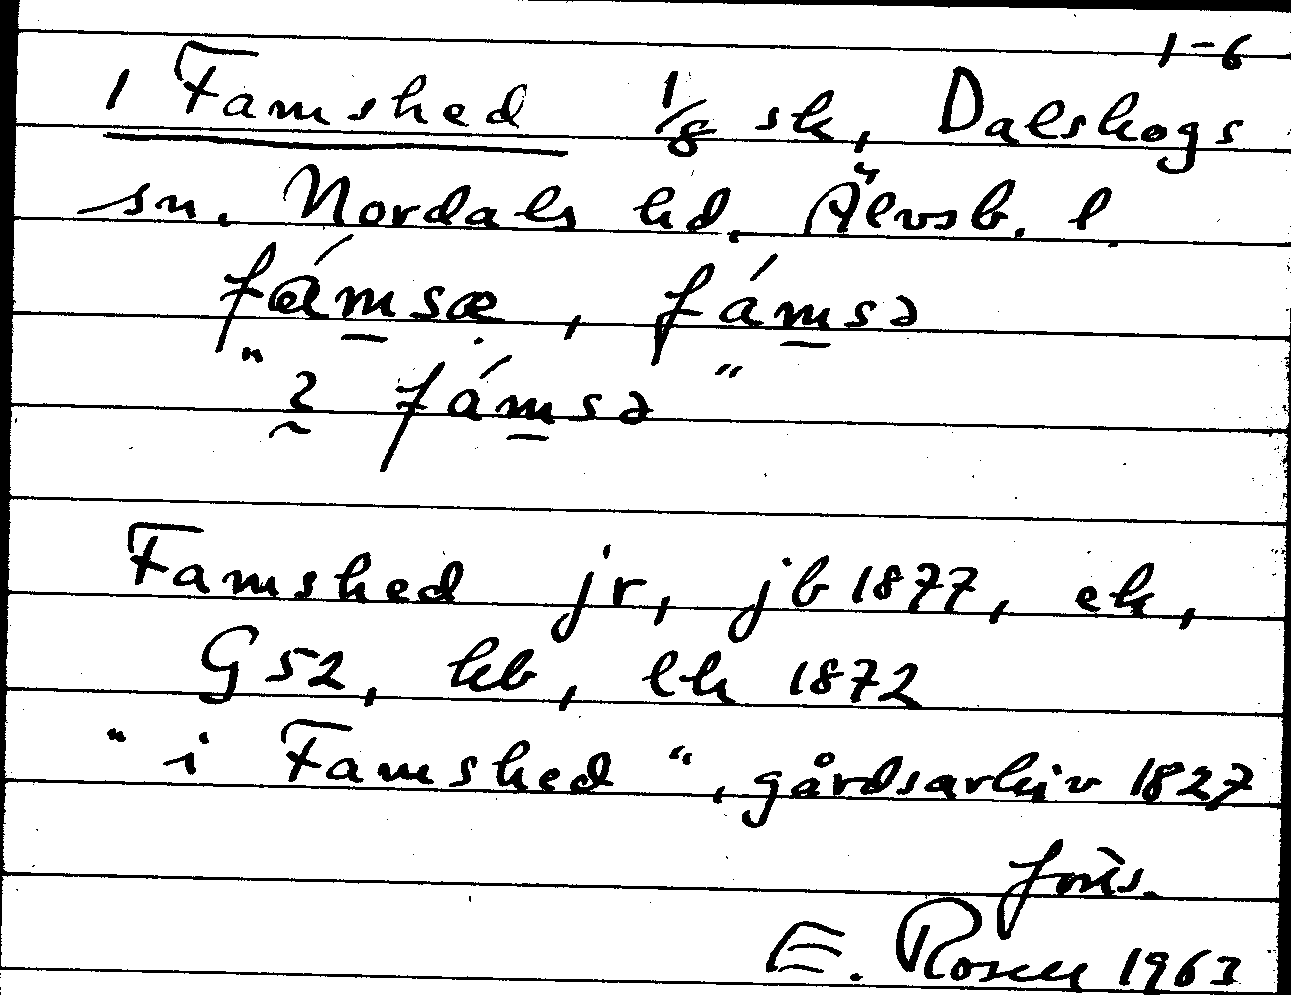 1-6
1 Famshed 1/8 sk, Dalskogs
sn. Nordals hd. Älvsb. l.
fámsæ, fámsə
"2 fámsə"
Famshed jr, jb 1877, ek,
G 52, kb, lk 1872
"i Famshed", gårdsarkiv 1827
forts.
E. Rosell 1963